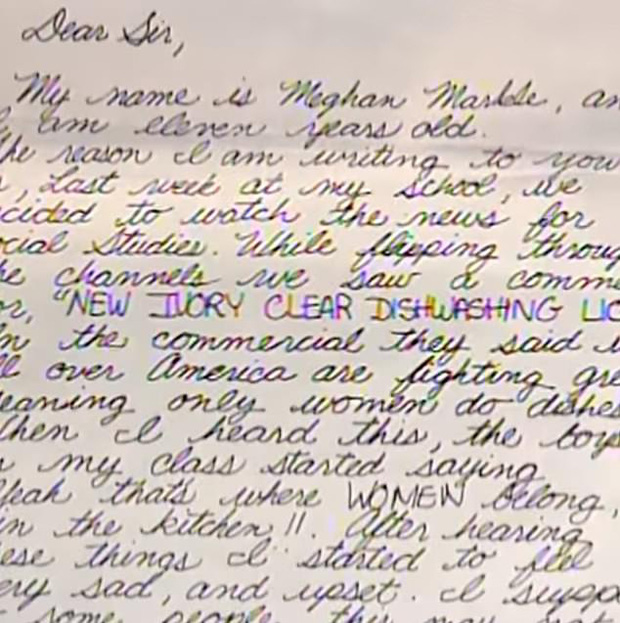 Dear Sir,
My name is Meghan Markle, an
I am eleven years old.
he reason I am writing to you
, Last week at my school, we
cided to watch the news for
ocial Studies. While flipping throug
he channels we saw a comme
or, "NEW IVORY CLEAR DISHWASHING LIQ
In the commercial they said
ll over America are fighting gre
eaning only women do dishes
hen I heard this, the boys
n my class started saying
Yeah that's where WOMEN belong,
in the kitchen!!. After hearing
ese things I started to feel
ery sad, and upset. I suppo
some people, this may not